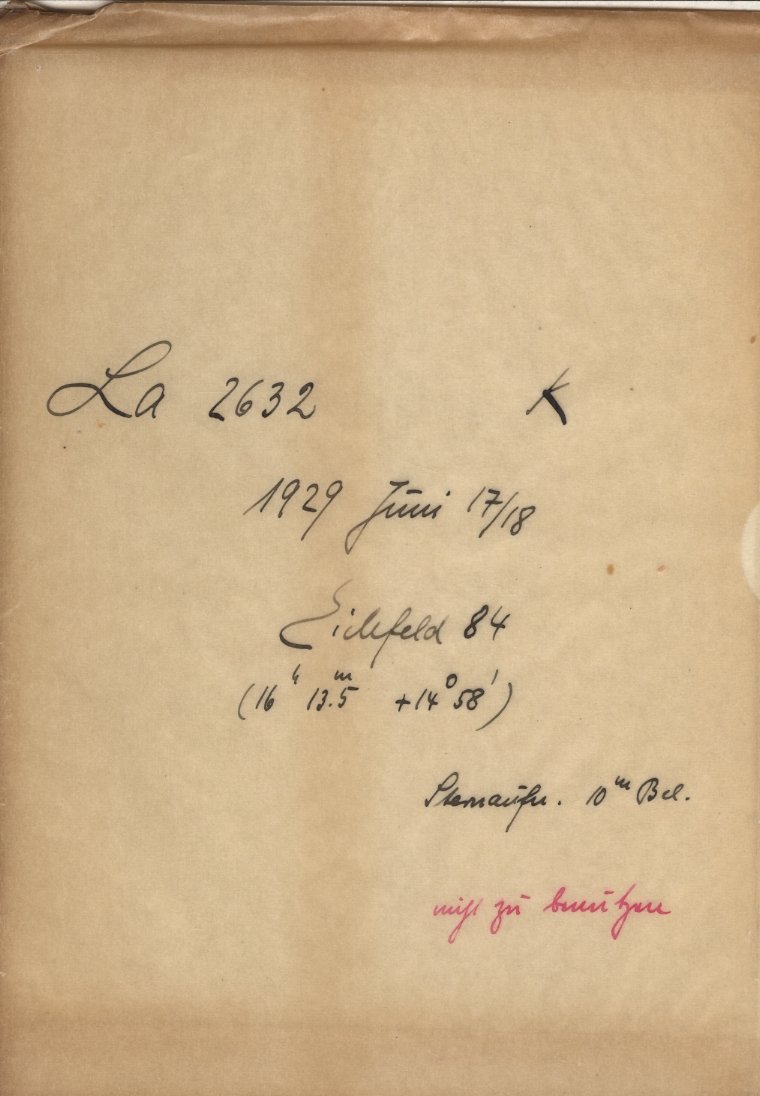 La 2632 K
1929 Juni 17/18
Eichfeld 84
(16ʰ 13.5ᵐ +14° 58')
Sternaufn. 10ᵐ Bel.
nicht zu benützen